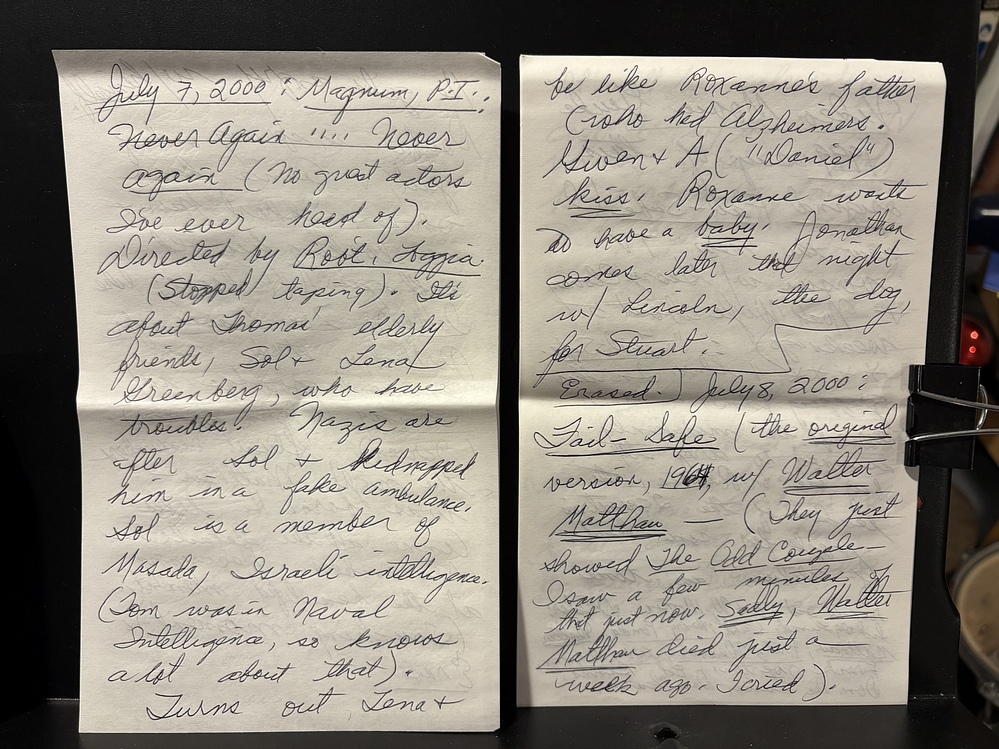 July 7, 2000: Magnum, P.I.:
Never Again '''' Never
again (No guest actors
I've ever heard of).
Directed by Robt. Loggia.
(Stopped taping). It's
about Thomas' elderly
friends, Sol + Lena
Greenberg, who have
troubles. Nazis are
after Sol + kidnapped
him in a fake ambulance.
Sol is a member of
Masada, Israeli intelligence.
(Tom was in Naval
Intelligence, so knows
a lot about that).
Turns out, Lena +
be like Roxanne's father
(who had Alzheimers.
Gwen + A ("Daniel")
kiss. Roxanne wants
to have a baby. Jonathan
comes later that night
w/ Lincoln, the dog,
for Stuart.
Erased.) July 8, 2000:
Fail-Safe (the original
version, 1964, w/ Walter
Matthau — (They just
showed The Odd Couple—
I saw a few minutes of
that just now. Sadly, Walter
Matthau died just a
week ago. I cried).